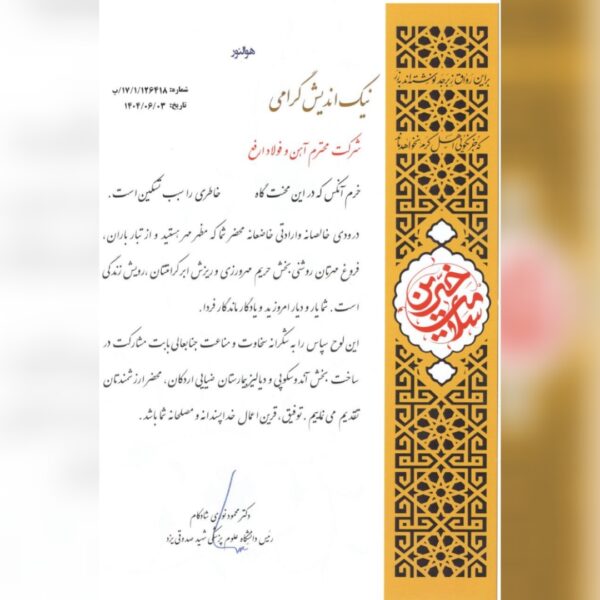 هوالنور
شماره: ۱۷/۱/۱۲۶۴۱۸/ب
تاریخ: ۱۴۰۴/۰۶/۰۳
نیک اندیش گرامی
شرکت محترم آهن و فولاد ارفع
خرم آنکس که در این محنت گاه خاطری را سبب تسکین است.
درودی خالصانه وارادتی خاضعانه محضر شما که مظهر مهر هستید و از تبار باران،
فروغ مهرتان روشنی بخش حریم مهرورزی و ریزش ابر کرامتتان، رویش زندگی
است. شما یار و دیار امروزید و یادگار ماندگار فردا.
این لوح سپاس را به شکرانه سخاوت و مناعت جنابعالی بابت مشارکت در
ساخت بخش آندوسکوپی و دیالیز بیمارستان ضیایی اردکان، محضر ارزشمندتان
تقدیم می نماییم. توفیق، قرین اعمال خداپسندانه و مصلحانه شما باشد.
دکتر محمود نوری شادکام
رئیس دانشگاه علوم پزشکی شهید صدوقی یزد
براین رواق زبرجد نوشته‌اند بزر
که جز نکوئی اهل کرم نخواهد ماند
خیرین سلامت